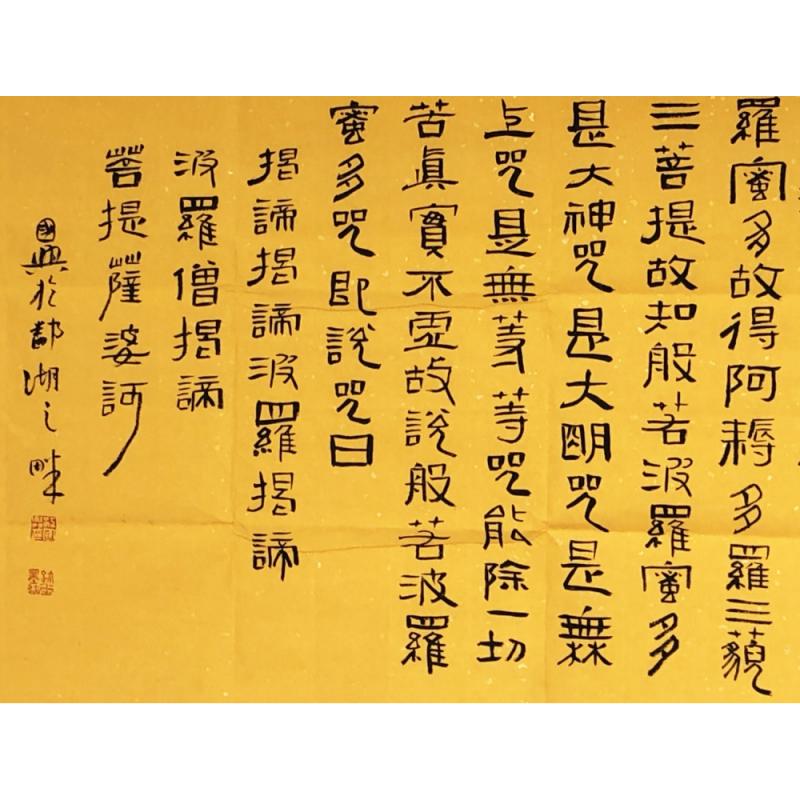 羅蜜多故得阿耨多羅三藐
三菩提故知般若波羅蜜多
是大神咒是大明咒是無
上咒是無等等咒能除一切
苦真實不虛故說般若波羅
蜜多咒即說咒曰
揭諦揭諦波羅揭諦
波羅僧揭諦
菩提薩婆訶
國興於鄱湖之畔